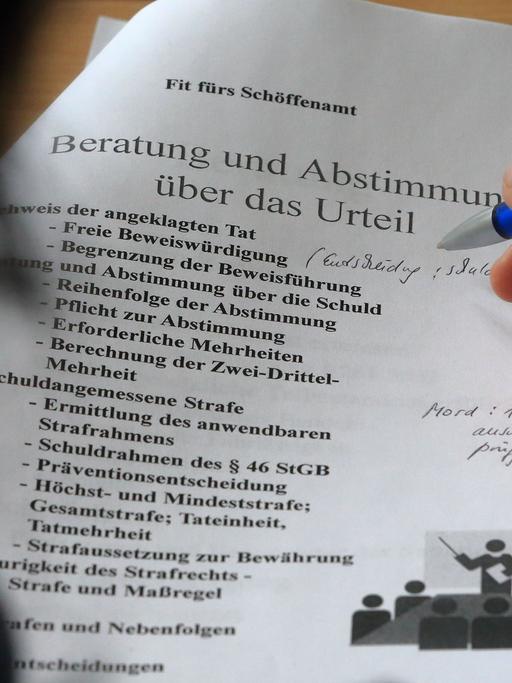 Fit fürs Schöffenamt
Beratung und Abstimmun
über das Urteil
hweis der angeklagten Tat
- Freie Beweiswürdigung (Entscheidung :
- Begrenzung der Beweisführung
tung und Abstimmung über die Schuld
- Reihenfolge der Abstimmung
- Pflicht zur Abstimmung
- Erforderliche Mehrheiten
- Berechnung der Zwei-Drittel-
Mehrheit
chuldangemessene Strafe
- Ermittlung des anwendbaren
Strafrahmens
Mord :
- Schuldrahmen des § 46 StGB
- Präventionsentscheidung
- Höchst- und Mindeststrafe;
Gesamtstrafe; Tateinheit,
Tatmehrheit
- Strafaussetzung zur Bewährung
urigkeit des Strafrechts -
Strafe und Maßregel
rafen und Nebenfolgen
ntscheidungen